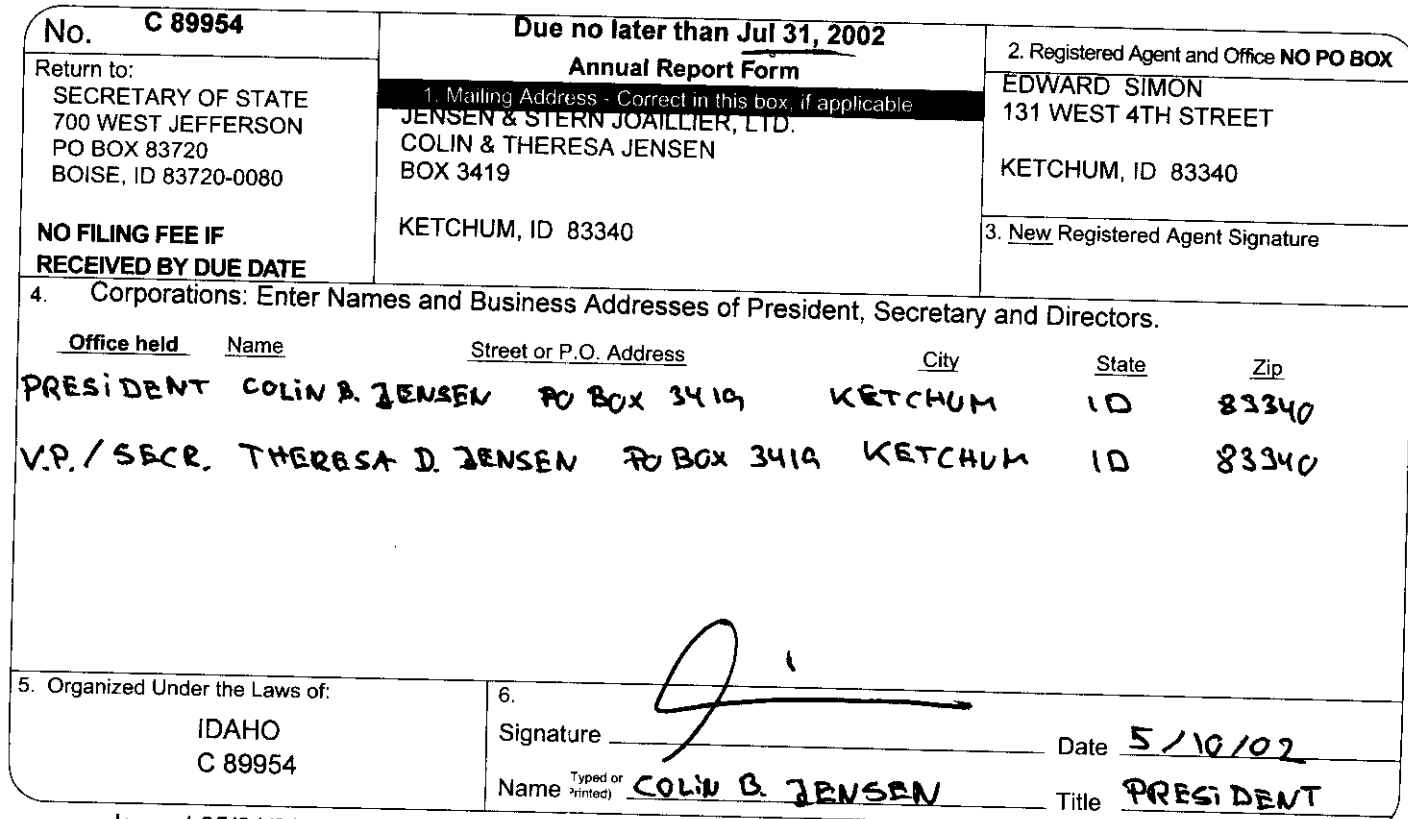 No. C 89954
Return to:
SECRETARY OF STATE
700 WEST JEFFERSON
PO BOX 83720
BOISE, ID 83720-0080
NO FILING FEE IF
RECEIVED BY DUE DATE
Due no later than Jul 31, 2002
Annual Report Form
1. Mailing Address - Correct in this box, if applicable
JENSEN & STERN JOAILLIER, LTD.
COLIN & THERESA JENSEN
BOX 3419
KETCHUM, ID 83340
2. Registered Agent and Office NO PO BOX
EDWARD SIMON
131 WEST 4TH STREET
KETCHUM, ID 83340
3. New Registered Agent Signature
4. Corporations: Enter Names and Business Addresses of President, Secretary and Directors.
Office held Name Street or P.O. Address City State Zip
PRESIDENT COLIN B. JENSEN PO BOX 3419 KETCHUM ID 83340
V.P. / SECR. THERESA D. JENSEN PO BOX 3419 KETCHUM ID 83340
5. Organized Under the Laws of:
IDAHO
C 89954
6.
Signature
Date 5/10/02
Name Typed or Printed) COLIN B. JENSEN
Title PRESIDENT